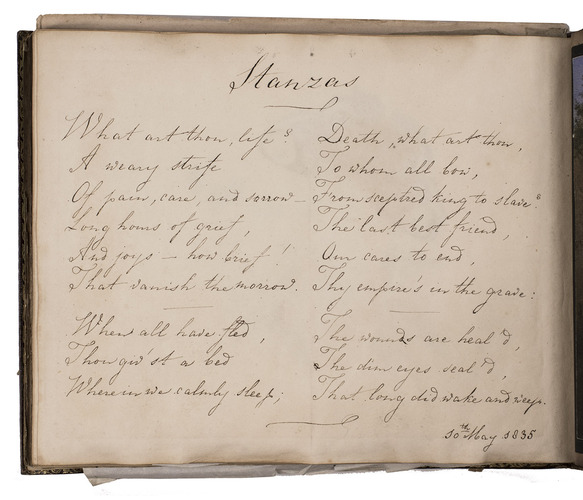 Stanzas
What art thou, life?
A weary strife
Of pain, care, and sorrow
Long hours of grief,
And joys — how brief!
That vanish the morrow.
Death, what art thou,
To whom all bow,
From sceptred king to slave?
The last best friend,
Our cares to end,
Thy empire's in the grave:
When all have fled,
Thou giv'st a bed
Wherein we calmly sleep;
The wounds are heal'd,
The dim eyes seal'd,
That long did wake and weep.
10th May 1835